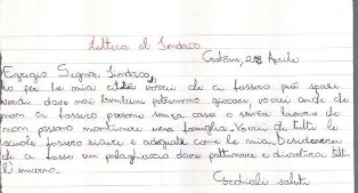 Lettera al Sindaco
Crotone, 28 Aprile
Egregio Signor Sindaco,
Io per la mia città vorrei che ci fossero più spazi
verdi dove noi bambini potremmo giocare, vorrei anche che
non ci fossero persone senza casa o senza lavoro che
non possono mantenere una famiglia. Vorrei che tutte le
scuole fossero sicure e adeguate come la mia. Desidererei
che ci fosse un palaghiaccio dove pattinare e divertirci tutto
l'inverno.
Cordiali saluti